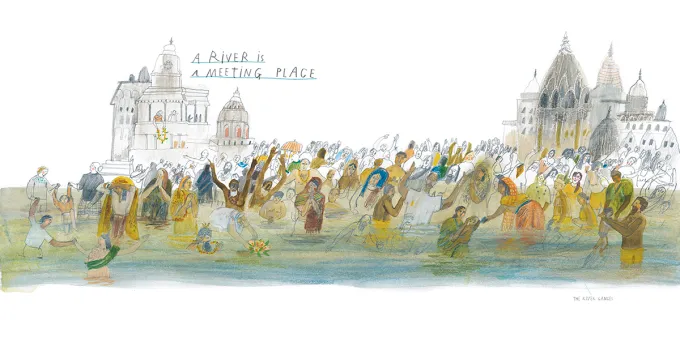 A RiVER is
A MEETING PLACE
THE RIVER GANGES